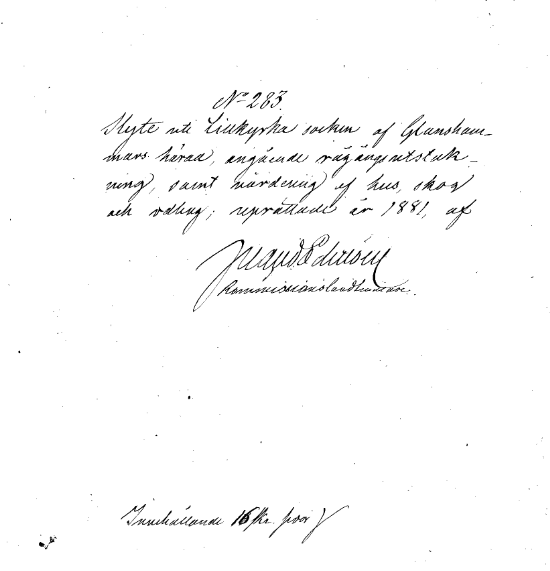 No 283.
Hyte uti Lillkyrka socken af Glansham-
mars härad, angående rågångsutstak-
ning, samt värdering af hus, skog
och odling; upprättade år 1881, af
Kommissionslandtmätare.
Innehållande 16 st.